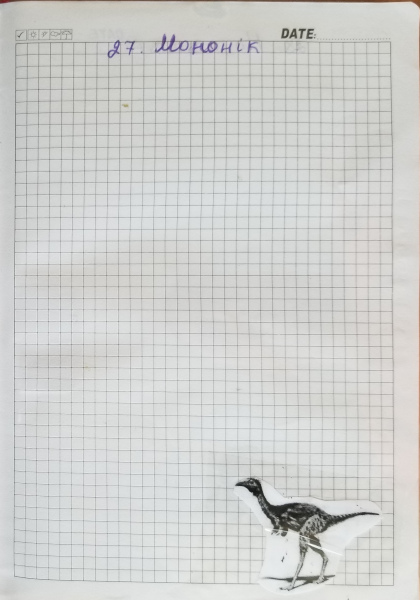 DATE:
27. Мононік